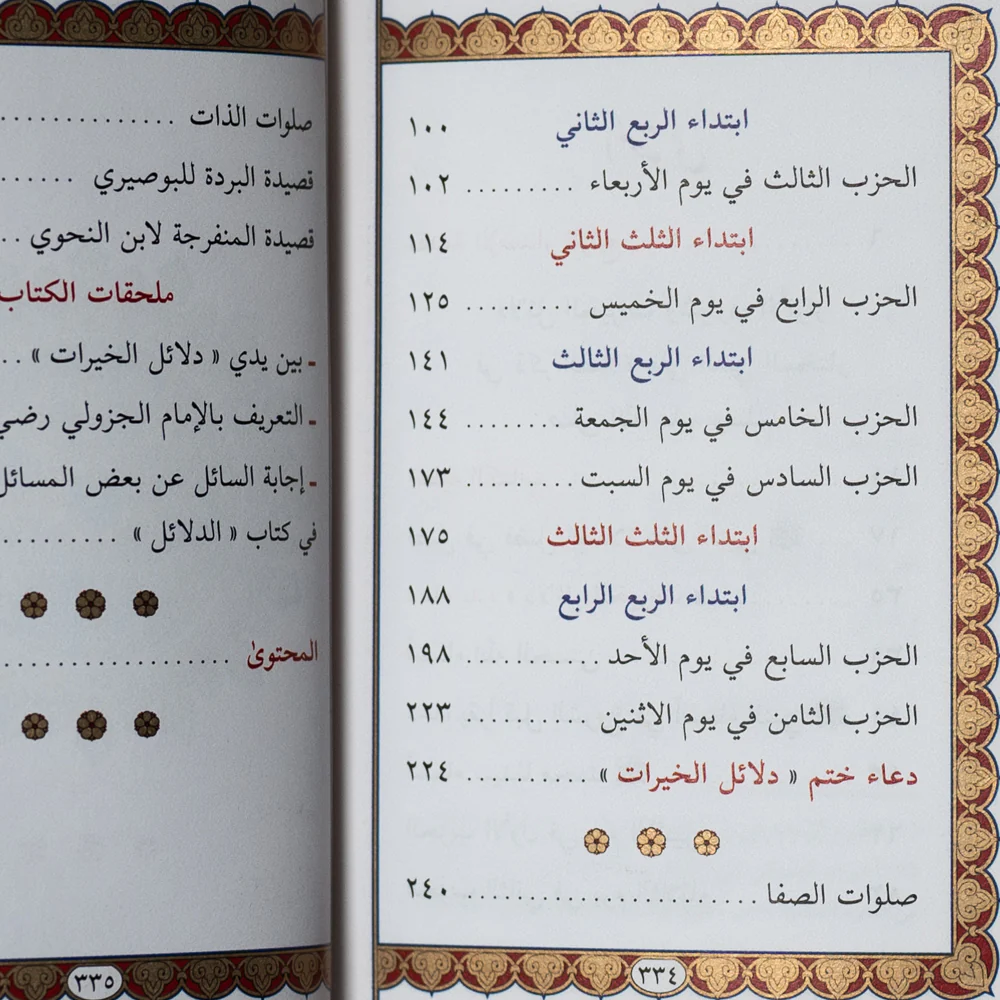 ابتداء الربع الثاني ١٠٠
الحزب الثالث في يوم الأربعاء .......... ١٠٢
ابتداء الثلث الثاني ١١٤
الحزب الرابع في يوم الخميس .......... ١٢٥
ابتداء الربع الثالث ١٤١
الحزب الخامس في يوم الجمعة ......... ١٤٤
الحزب السادس في يوم السبت .......... ١٧٣
ابتداء الثلث الثالث ١٧٥
ابتداء الربع الرابع ١٨٨
الحزب السابع في يوم الأحد ............ ١٩٨
الحزب الثامن في يوم الاثنين ............ ٢٢٣
دعاء ختم « دلائل الخيرات » ........... ٢٢٤
صلوات الصفا .......................... ٢٤٠
٣٣٤
صلوات الذات ...............
قصيدة البردة للبوصيري ......
قصيدة المنفرجة لابن النحوي ..
ملحقات الكتاب
ـ بين يدي « دلائل الخيرات » ..
ـ التعريف بالإمام الجزولي رضي
ـ إجابة السائل عن بعض المسائل
في كتاب « الدلائل » ..........
المحتوىٰ ..................
٣٣٥